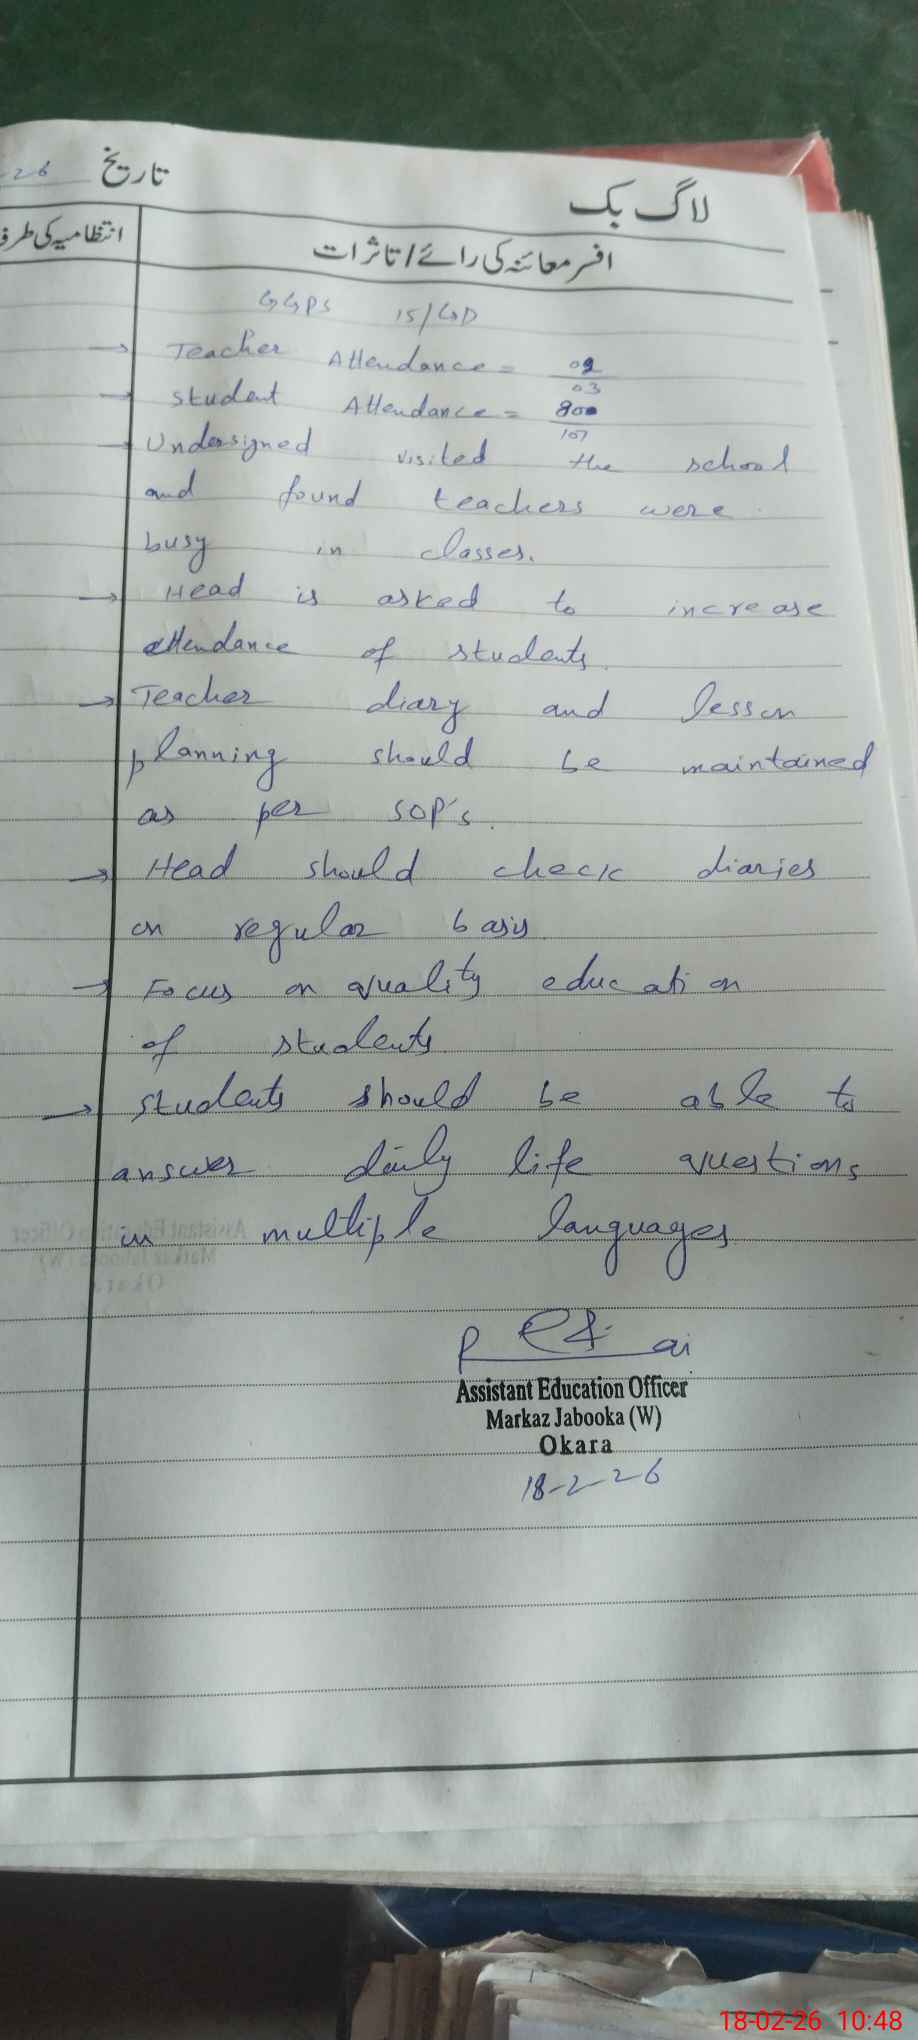 لاگ بک
تاریخ 26
افسر معائنہ کی رائے/تاثرات
انتظامیہ کی طرف
GGPS 15/GD
→ Teacher Attendance = 02/03
→ Student Attendance =
107
→ Undersigned visited the school
and found teachers were
busy in classes.
→ Head is asked to increase
attendance of students.
→ Teacher diary and lesson
planning should be maintained
as per SOP's.
→ Head should check diaries
on regular basis.
→ Focus on quality education
of students.
→ Students should be able to
answer daily life questions
in multiple languages.
Assistant Education Officer
Markaz Jabooka (W)
Okara
18-2-26
Assistant Education Officer
Markaz Jabooka (W)
Okara
18-02-26 10:48